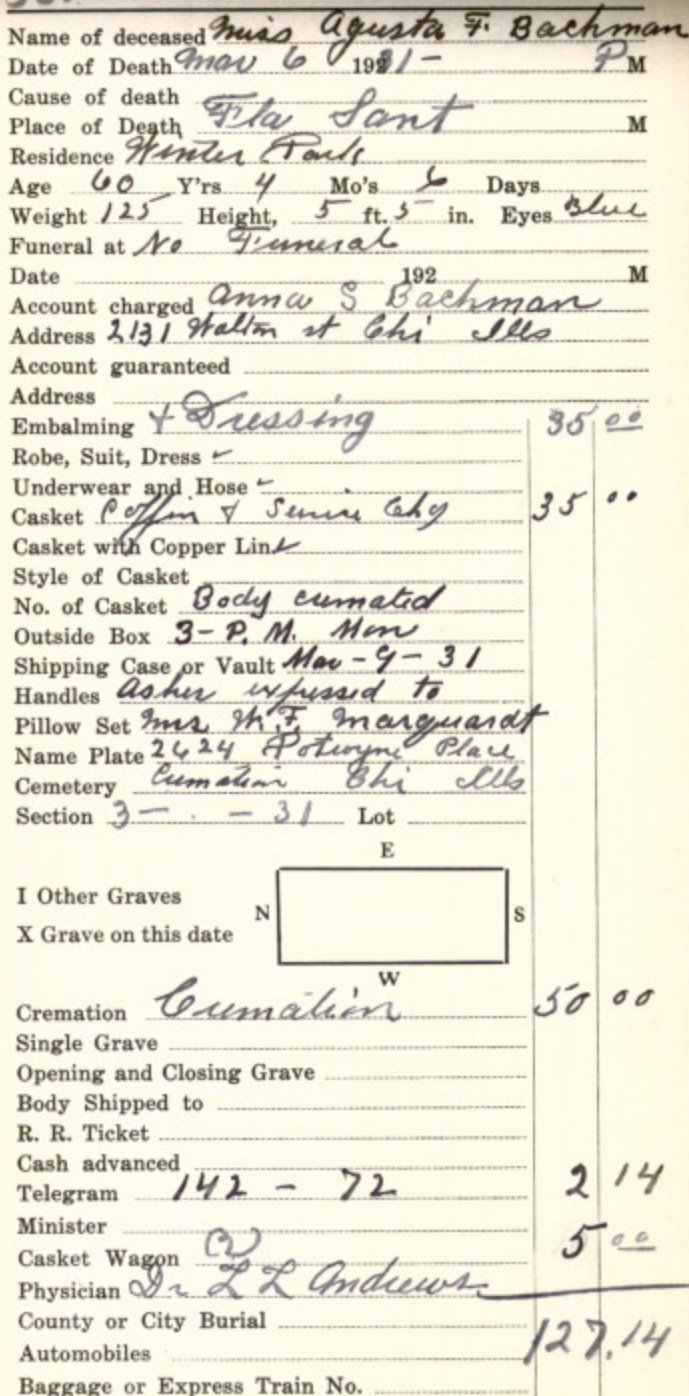 Name of deceased Miss Agusta F. Bachman
Date of Death Mar 6 1931- P M
Cause of death
Place of Death Fla Sant M
Residence Winter Park
Age 60 Y'rs 4 Mo's 6 Days
Weight 125 Height, 5 ft. 5 in. Eyes Blue
Funeral at No Funeral
Date 192 M
Account charged Anna S Bachman
Address 2131 Walton st Chi Ills
Account guaranteed
Address
Embalming & Dressing 35 00
Robe, Suit, Dress
Underwear and Hose
Casket Coffin & Service Chg 35 00
Casket with Copper Lin
Style of Casket
No. of Casket Body cremated
Outside Box 3- P. M. Mon
Shipping Case or Vault Mar - 9 - 31
Handles Ashes expressed to
Pillow Set Mrs. M. F. Marquardt
Name Plate 2624 Potwyne Place
Cemetery Cremation Chi Ills
Section 3 - - 31 Lot
E
I Other Graves
N S
X Grave on this date
W
Cremation Cremation 50 00
Single Grave
Opening and Closing Grave
Body Shipped to
R. R. Ticket
Cash advanced
Telegram 142 - 72 2 14
Minister
Casket Wagon (2) 5 00
Physician Dr L L Andrews
County or City Burial
Automobiles 127.14
Baggage or Express Train No.